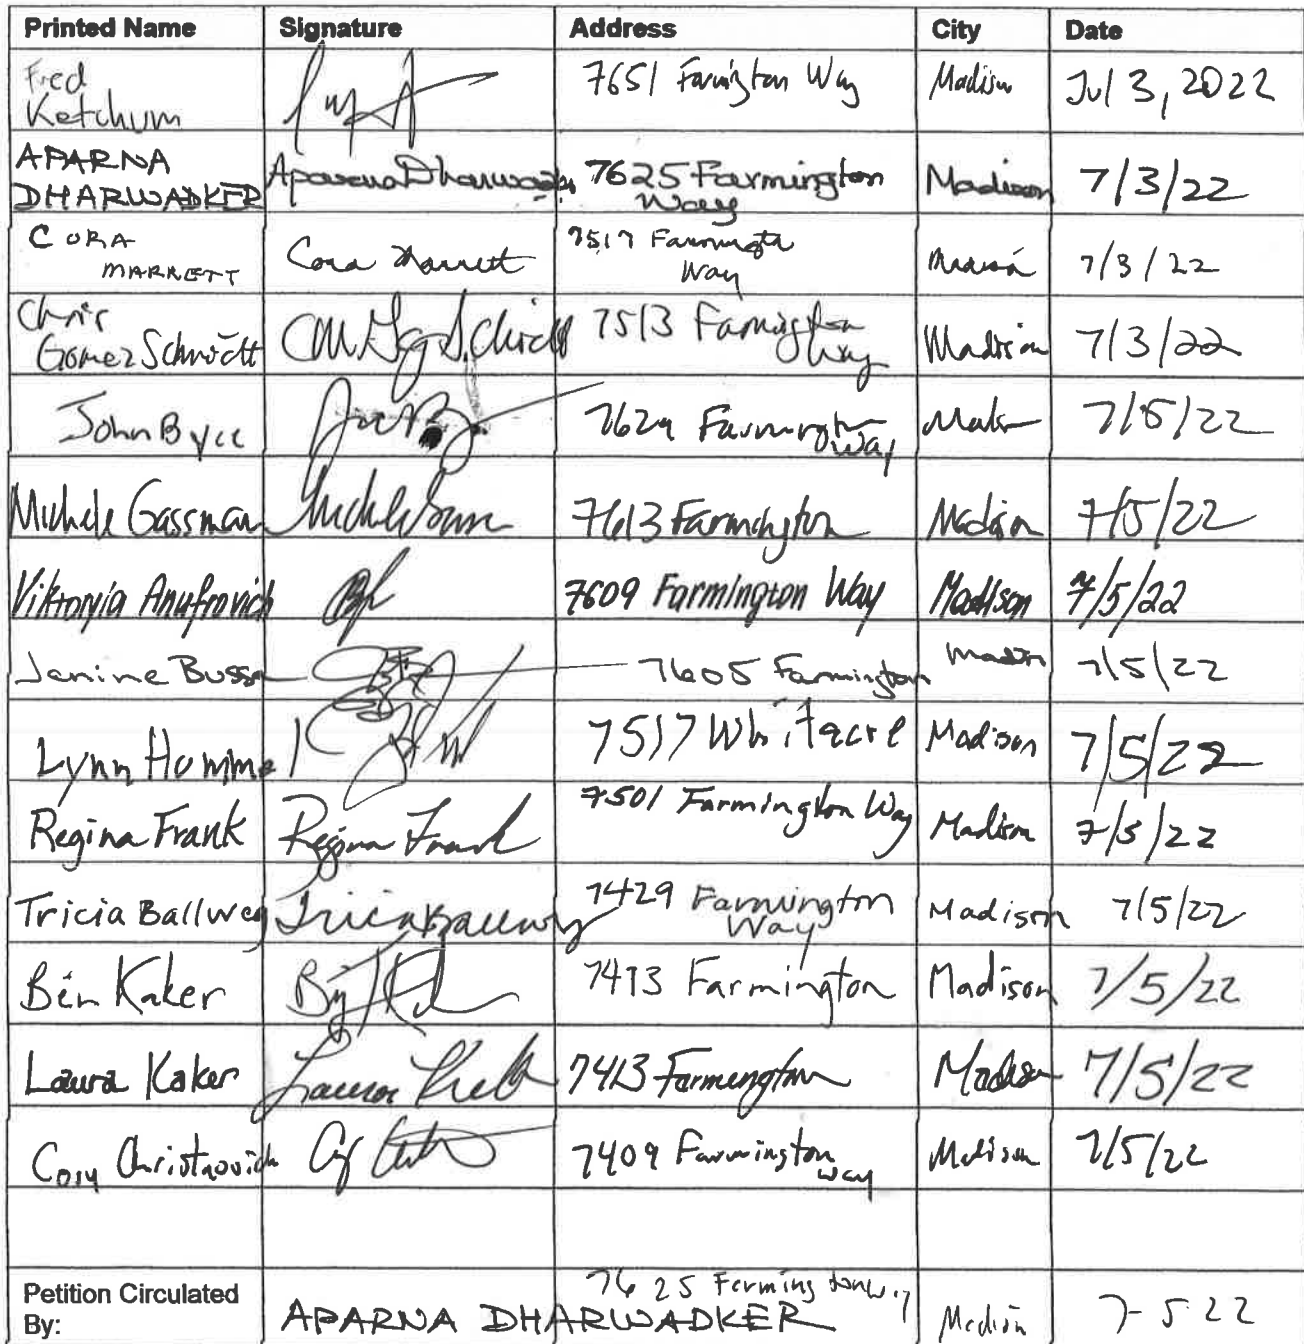 Printed Name Signature Address City Date
Fred Ketchum 7651 Farmington Way Madison Jul 3, 2022
APARNA DHARWADKER Aparna Dharwadker 7625 Farmington Way Madison 7/3/22
CORA MARRETT Cora Marrett 7517 Farmington Way Madison 7/3/22
Chris Gomez Schmidt 7513 Farmington Way Madison 7/3/22
John Byce 7629 Farmington Way Madison 7/5/22
Michele Gassman 7613 Farmington Madison 7/5/22
Viktoryia Anufrovich 7609 Farmington Way Madison 7/5/22
Janine Busse 7605 Farmington Madison 7/5/22
Lynn Homme 7517 Whitacre Madison 7/5/22
Regina Frank Regina Frank 7501 Farmington Way Madison 7/5/22
Tricia Ballweg Tricia Ballweg 7429 Farmington Way Madison 7/5/22
Ben Kaker 7413 Farmington Madison 7/5/22
Laura Kaker 7413 Farmington Madison 7/5/22
Cory Christnovich 7409 Farmington way Madison 7/5/22
Petition Circulated By: APARNA DHARWADKER 7625 Farmington Way Madison 7-5 22